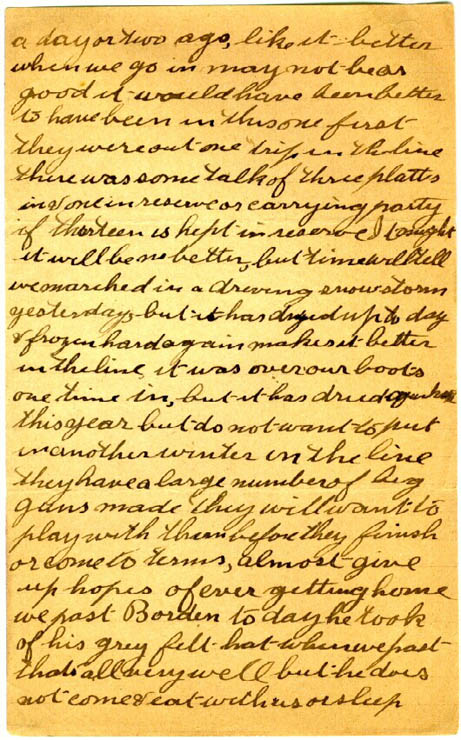 a day or two ago, like it better
when we go in may not be as
good it would have been better
to have been in this one first
they were out one trip in the line
there was some talk of three platts
in & one in reserve or carrying party
if thirteen is kept in reserve I
it will be no better, but time will tell
we marched in a driving snow storm
yesterday but it has dryed up to day
& frozen hard again makes it better
in the line, it was over our boots
one time in, but it has dried
this year but do not want to put
in another winter in the line
they have a large number of big
guns made they will want to
play with them before they finish
or come to terms, almost give
up hopes of ever getting home
we past Borden to day he took
of his grey felt hat when we past
thats all very well but he does
not come & eat with us or sleep